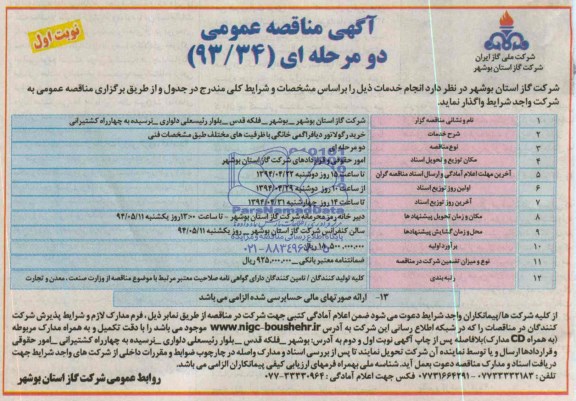 آگهی مناقصه عمومی
دو مرحله ای (۹۳/۳۴)
نوبت اول
شرکت ملی گاز ایران
شرکت گاز استان بوشهر
شرکت گاز استان بوشهر در نظر دارد انجام خدمات ذیل را براساس مشخصات و شرایط کلی مندرج در جدول و از طریق برگزاری مناقصه عمومی به
شرکت واجد شرایط واگذار نماید.
۱ نام و نشانی مناقصه گزار شرکت گاز استان بوشهر _بوشهر _فلکه قدس _بلوار رئیسعلی دلواری _نرسیده به چهارراه کشتیرانی
۲ شرح خدمات خرید رگولاتور دیافراگمی خانگی با ظرفیت های مختلف طبق مشخصات فنی
۳ نوع مناقصه دو مرحله ای
۴ مکان توزیع و تحویل اسناد امور حقوقی و قراردادهای شرکت گاز استان بوشهر
۵ آخرین مهلت اعلام آمادگی و ارسال اسناد مناقصه گران تا ساعت ۱۵ روز دوشنبه ۱۳۹۴/۰۴/۲۲
۶ اولین روز توزیع اسناد از ساعت ۱۰ روز دوشنبه ۱۳۹۴/۰۴/۲۹
۷ آخرین روز توزیع اسناد تا ساعت ۱۴ روز چهارشنبه ۱۳۹۴/۰۴/۳۱
۸ مکان و زمان تحویل پیشنهادها دبیر خانه رمز محرمانه شرکت گاز استان بوشهر - تا ساعت ۱۳:۰۰ روز یکشنبه ۹۴/۰۵/۱۱
۹ محل و زمان گشایش پیشنهادها سالن کنفرانس شرکت گاز استان بوشهر - روز یکشنبه ۹۴/۰۵/۱۱
۱۰ برآورد اولیه ۱۸,۵۰۰,۰۰۰,۰۰۰ ریال
۱۱ نوع و میزان تضمین شرکت در مناقصه ضمانتنامه معتبر بانکی _ ۹۲۵,۰۰۰,۰۰۰ ریال
۱۲ رتبه بندی کلیه تولید کنندگان / تامین کنندگان دارای گواهی نامه صلاحیت معتبر مرتبط با موضوع مناقصه از وزارت صنعت، معدن و تجارت
۱۳- ارائه صورتهای مالی حسابرسی شده الزامی می باشد
از کلیه شرکت ها/پیمانکاران واجد شرایط دعوت می شود ضمن اعلام آمادگی کتبی جهت شرکت در مناقصه از طریق نمابر ذیل، فرم مدارک لازم و شرایط پذیرش شرکت
کنندگان در مناقصات را که در شبکه اطلاع رسانی این شرکت به آدرس www.nigc-boushehr.ir موجود می باشد را با دقت تکمیل و به همراه مدارک مربوطه
(به همراه CD مدارک)بلافاصله پس از چاپ آگهی نوبت اول و دوم به آدرس: بوشهر _ فلکه قدس _ بلوار رئیسعلی دلواری _نرسیده به چهارراه کشتیرانی _امور حقوقی
و قراردادها ارسال و یا توسط نماینده آن شرکت تحویل نمایند تا پس از بررسی اسناد و مدارک واصله در چارچوب ضوابط و مقررات داخلی از شرکت های واجد شرایط جهت
دریافت اسناد و مدارک مناقصه دعوت بعمل آید. شناسه ملی بهمراه فرمهای ارزیابی کیفی پیمانکاران الزامی می باشد.
تلفن: ۰۷۷۳۳۳۳۲۱۸۳- ۰۷۷۳۱۶۶۴۲۹۱ فکس جهت اعلام آمادگی: ۳۳۳۳۰۹۶۴-۰۷۷
روابط عمومی شرکت گاز استان بوشهر
ParsNamadData
پایگاه اطلاع رسانی مناقصه و مزایده
۰۲۱-۸۸۳۴۹۶